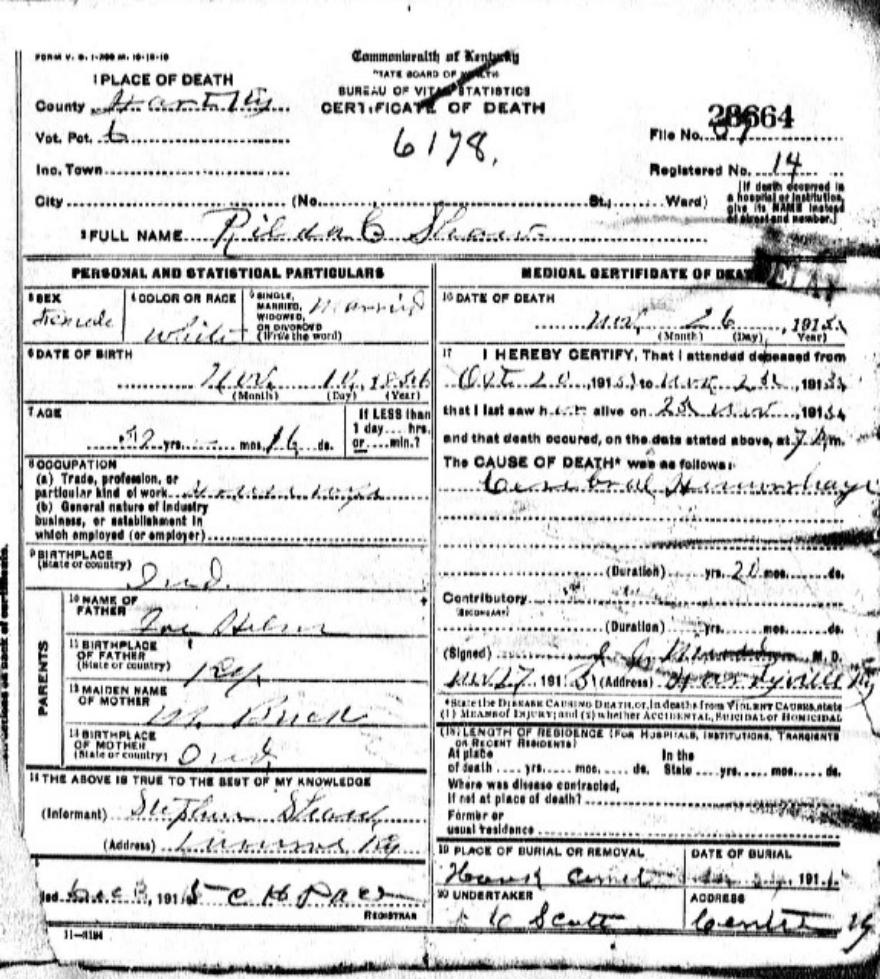 FORM V. S. 1-200 M. 10-10-10
Commonwealth of Kentucky
STATE BOARD OF HEALTH
BUREAU OF VITAL STATISTICS
CERTIFICATE OF DEATH
1 PLACE OF DEATH
County Hart Ky
Vot. Pct. 6
Inc. Town
City (No. St.; Ward)
6178.
28664
File No.
Registered No. 14
[If death occurred in a hospital or institution, give its NAME instead of street and number.]
2 FULL NAME Rilda C Shaw
PERSONAL AND STATISTICAL PARTICULARS
3 SEX Female
4 COLOR OR RACE White
5 SINGLE, MARRIED, WIDOWED, OR DIVORCED (Write the word) Married
6 DATE OF BIRTH
Nov. 10, 18
(Month) (Day) (Year)
7 AGE
52 yrs. mos. 16 ds.
If LESS than 1 day.... hrs. or.... min.?
8 OCCUPATION
(a) Trade, profession, or
particular kind of work
(b) General nature of industry
business, or establishment in
which employed (or employer)
9 BIRTHPLACE
(State or country) Ind.
PARENTS
10 NAME OF FATHER
11 BIRTHPLACE OF FATHER (State or country) Ky.
12 MAIDEN NAME OF MOTHER M.
13 BIRTHPLACE OF MOTHER (State or country) Ind
14 THE ABOVE IS TRUE TO THE BEST OF MY KNOWLEDGE
(Informant) Stephen Shaw
(Address) Ky
Dec 3, 191
REGISTRAR
11-3194
MEDICAL CERTIFICATE OF DEATH
DELAY
16 DATE OF DEATH
Nov. 26, 191
(Month) (Day) Year)
17 I HEREBY CERTIFY, That I attended deceased from
Oct 20, 191 to Nov 191
that I last saw her alive on Nov, 191
and that death occured, on the date stated above, at 7 P.m.
The CAUSE OF DEATH* was as follows:
Cerebral Hemorrhage
(Duration) yrs. 20 mos. ds.
Contributory
(SECONDARY)
(Duration) yrs. mos. ds.
(Signed) M. D.
Nov 27, 191 (Address) Hardyville Ky
*State the DISEASE CAUSING DEATH, or, in deaths from VIOLENT CAUSES, state
(1) MEANS OF INJURY; and (2) whether ACCIDENTAL, SUICIDAL or HOMICIDAL
LENGTH OF RESIDENCE (FOR HOSPITALS, INSTITUTIONS, TRANSIENTS
OR RECENT RESIDENTS)
At place of death .... yrs. .... mos. .... ds. In the State .... yrs. .... mos. .... ds.
Where was disease contracted,
If not at place of death?
Former or
usual residence
19 PLACE OF BURIAL OR REMOVAL
DATE OF BURIAL
191
20 UNDERTAKER
Scott
ADDRESS
Center Ky